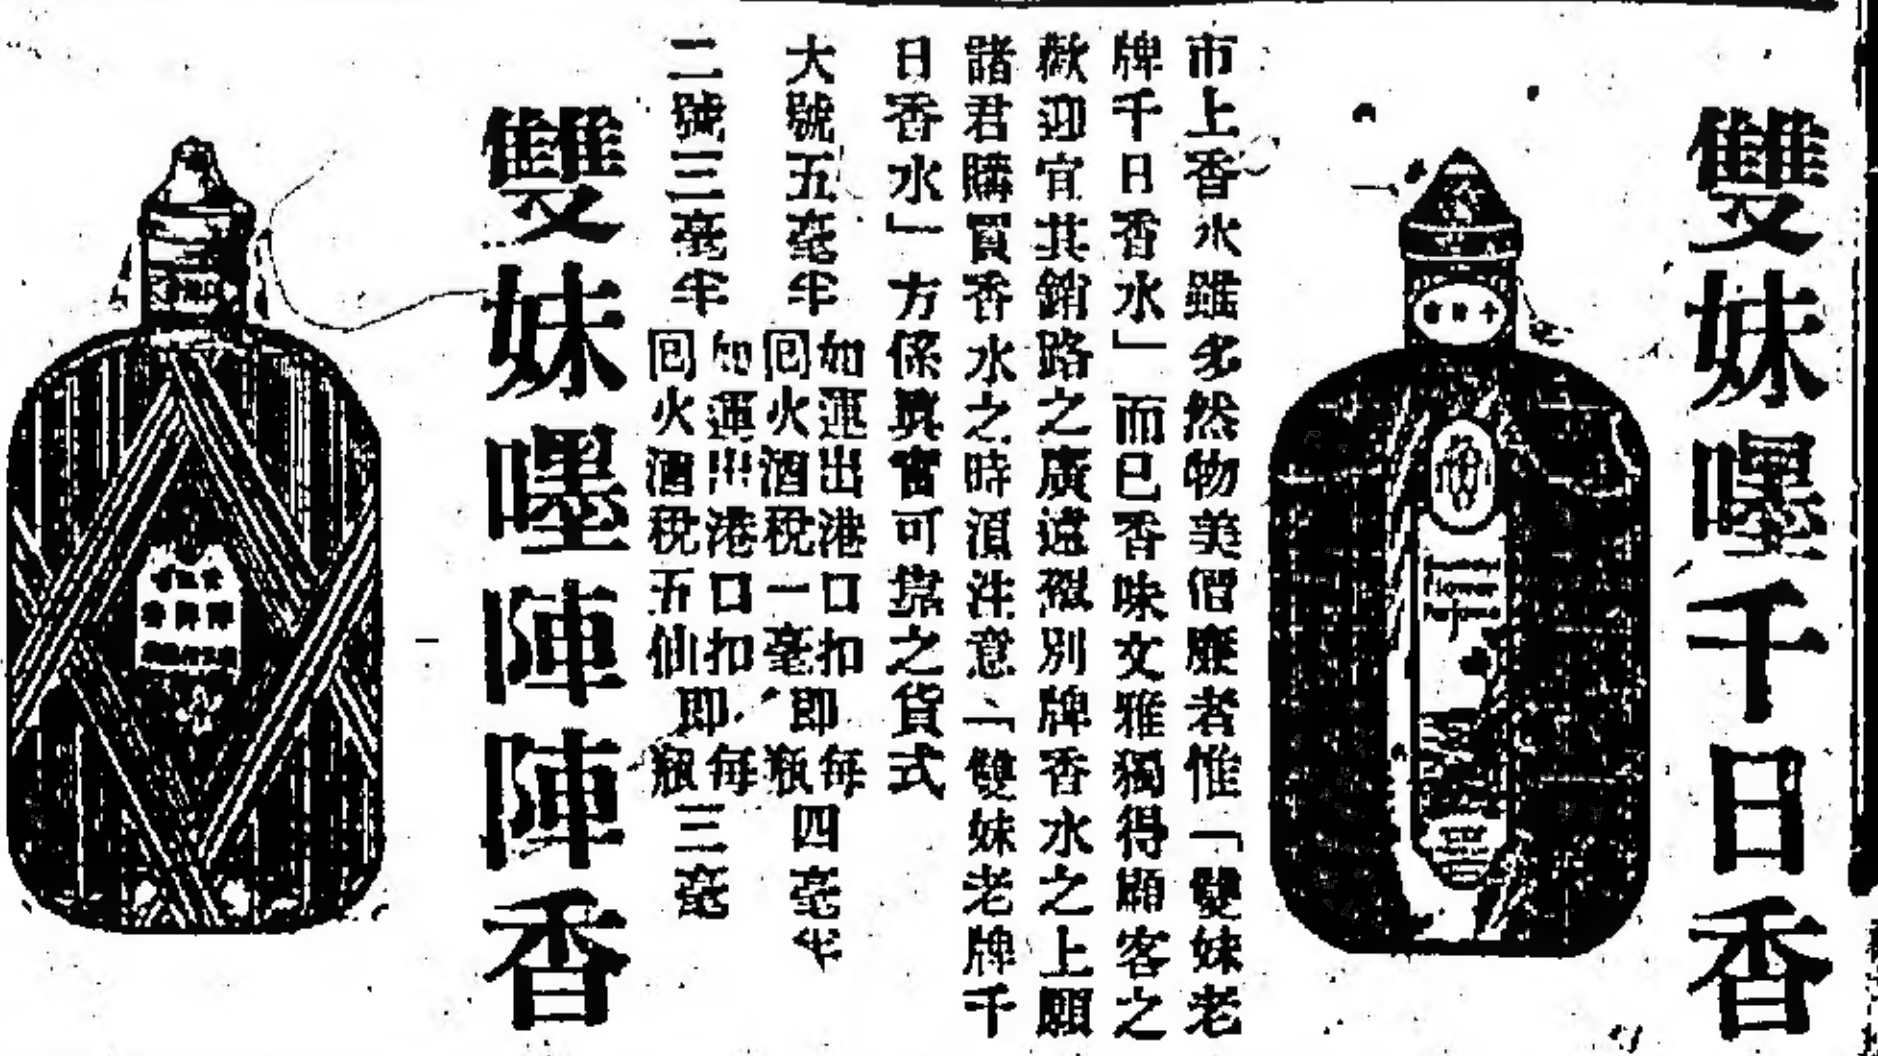 雙妹嚜千日香
市上香水雖多然物美價廉者惟「雙妹老
牌千日香水」而已香味文雅獨得顧客之
歡迎宜其銷路之廣遠視別牌香水之上願
諸君購買香水之時須注意「雙妹老牌千
日香水」方係眞實可靠之貨式
大號五毫半 如運出港口扣囘火酒稅一毫 即每瓶四毫半
二號三毫半 如運出港口扣囘火酒稅五仙 即每瓶三毫
雙妹嚜陣陣香